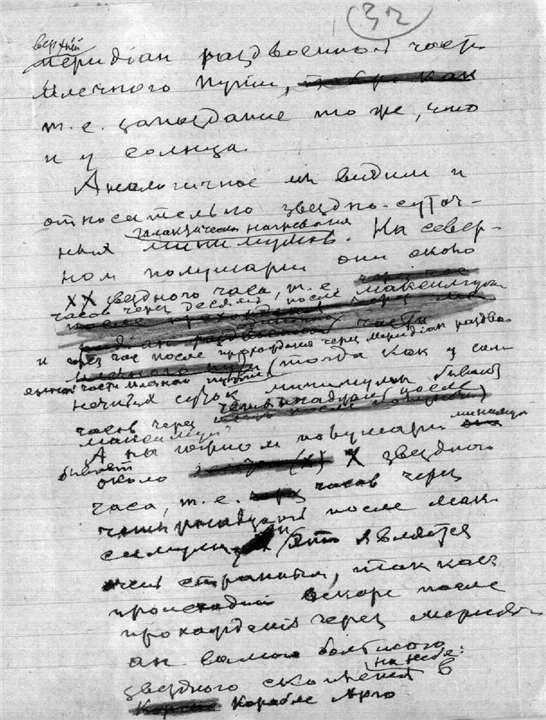 32
верхній
меридіан раздвоенной части
Млечного Пути,
т.е. запоздание то же, что
и у солнца.
Аналогичное мы видим и
относительно звездно-суточ-
галактическаго нагревания
ных минимумов. На север-
ном полушарии они около
XX звездного часа, т.е.
часов через десять после максимума
и через час после прохождения через меридіан раздво
енной части млечнаго пути (тогда как у солн
нечных суток минимумы бывают
часов через четырнадцать после
максимума)
А на южном полушарии минимум
бывает
около X звездного
часа, т.е. часов через
четырнадцать после мак
симума. Это является
очень странным, так как
происходит вскоре после
прохождения через мериди
ан самого большого
на небе:
звездного скопления в
Корабле Арго